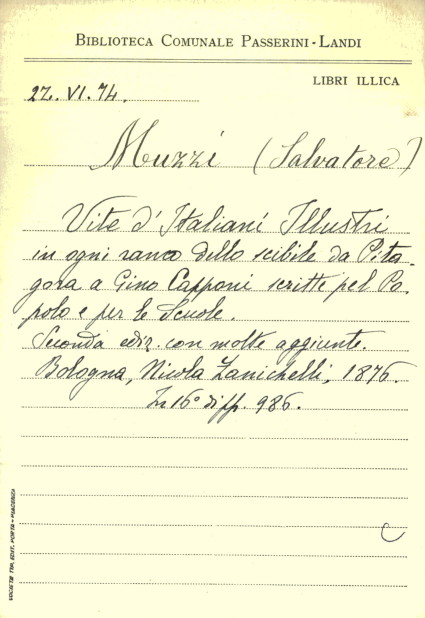 BIBLIOTECA COMUNALE PASSERINI-LANDI
LIBRI ILLICA
22. VI. 74.
Muzzi (Salvatore)
Vite d'Italiani Illustri
in ogni ramo dello scibile da Pita-
gora a Gino Capponi scritte pel Po-
polo e per le Scuole.
Seconda ediz. con molte aggiunte.
Bologna, Nicola Zanichelli, 1876.
In 16° di pp. 986.
C
SOCIETÀ TIP. EDIT. PORTA - PIACENZA